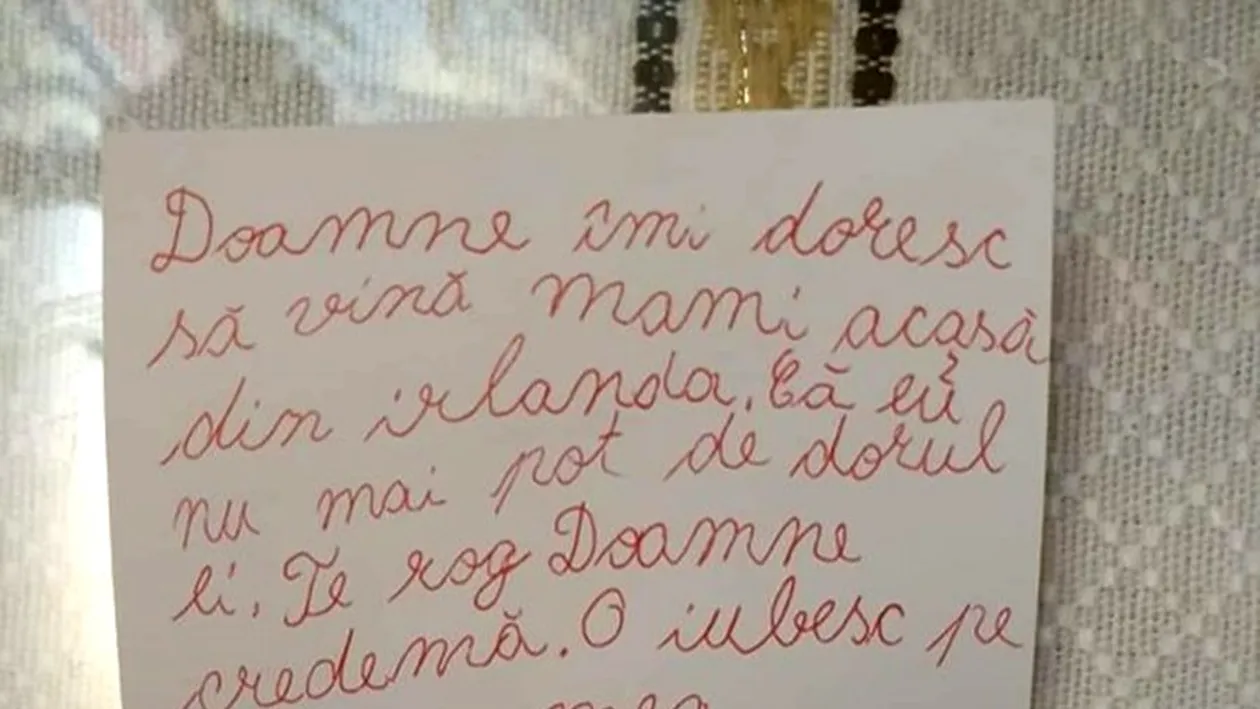 Doamne îmi doresc
să vină Mami acasă
din irlanda. Că eu
nu mai pot de dorul
li. Te rog Doamne
credemă. O iubesc pe
mea